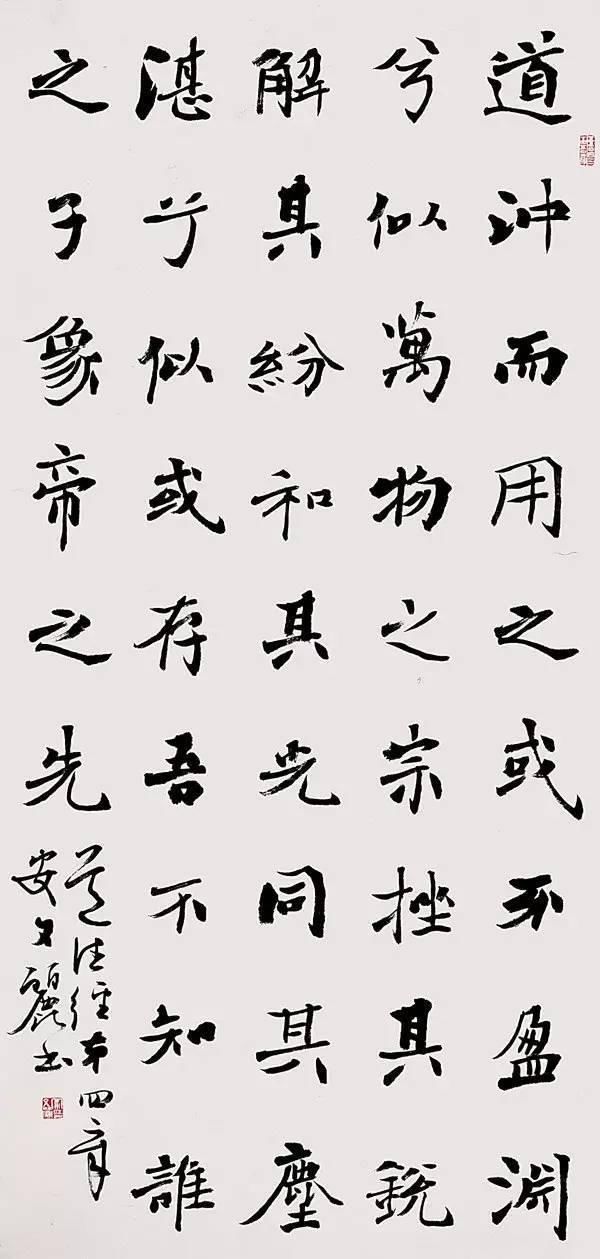 道沖而用之或不盈淵
兮似萬物之宗挫其銳
解其紛和其光同其塵
湛兮似或存吾不知誰
之子象帝之先
道德經第四章
安文麗书